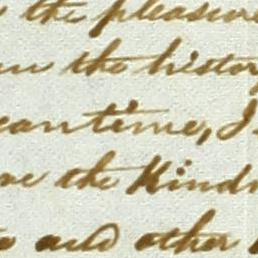 the pleasure
the histor
eantime, I
the Kind
and other